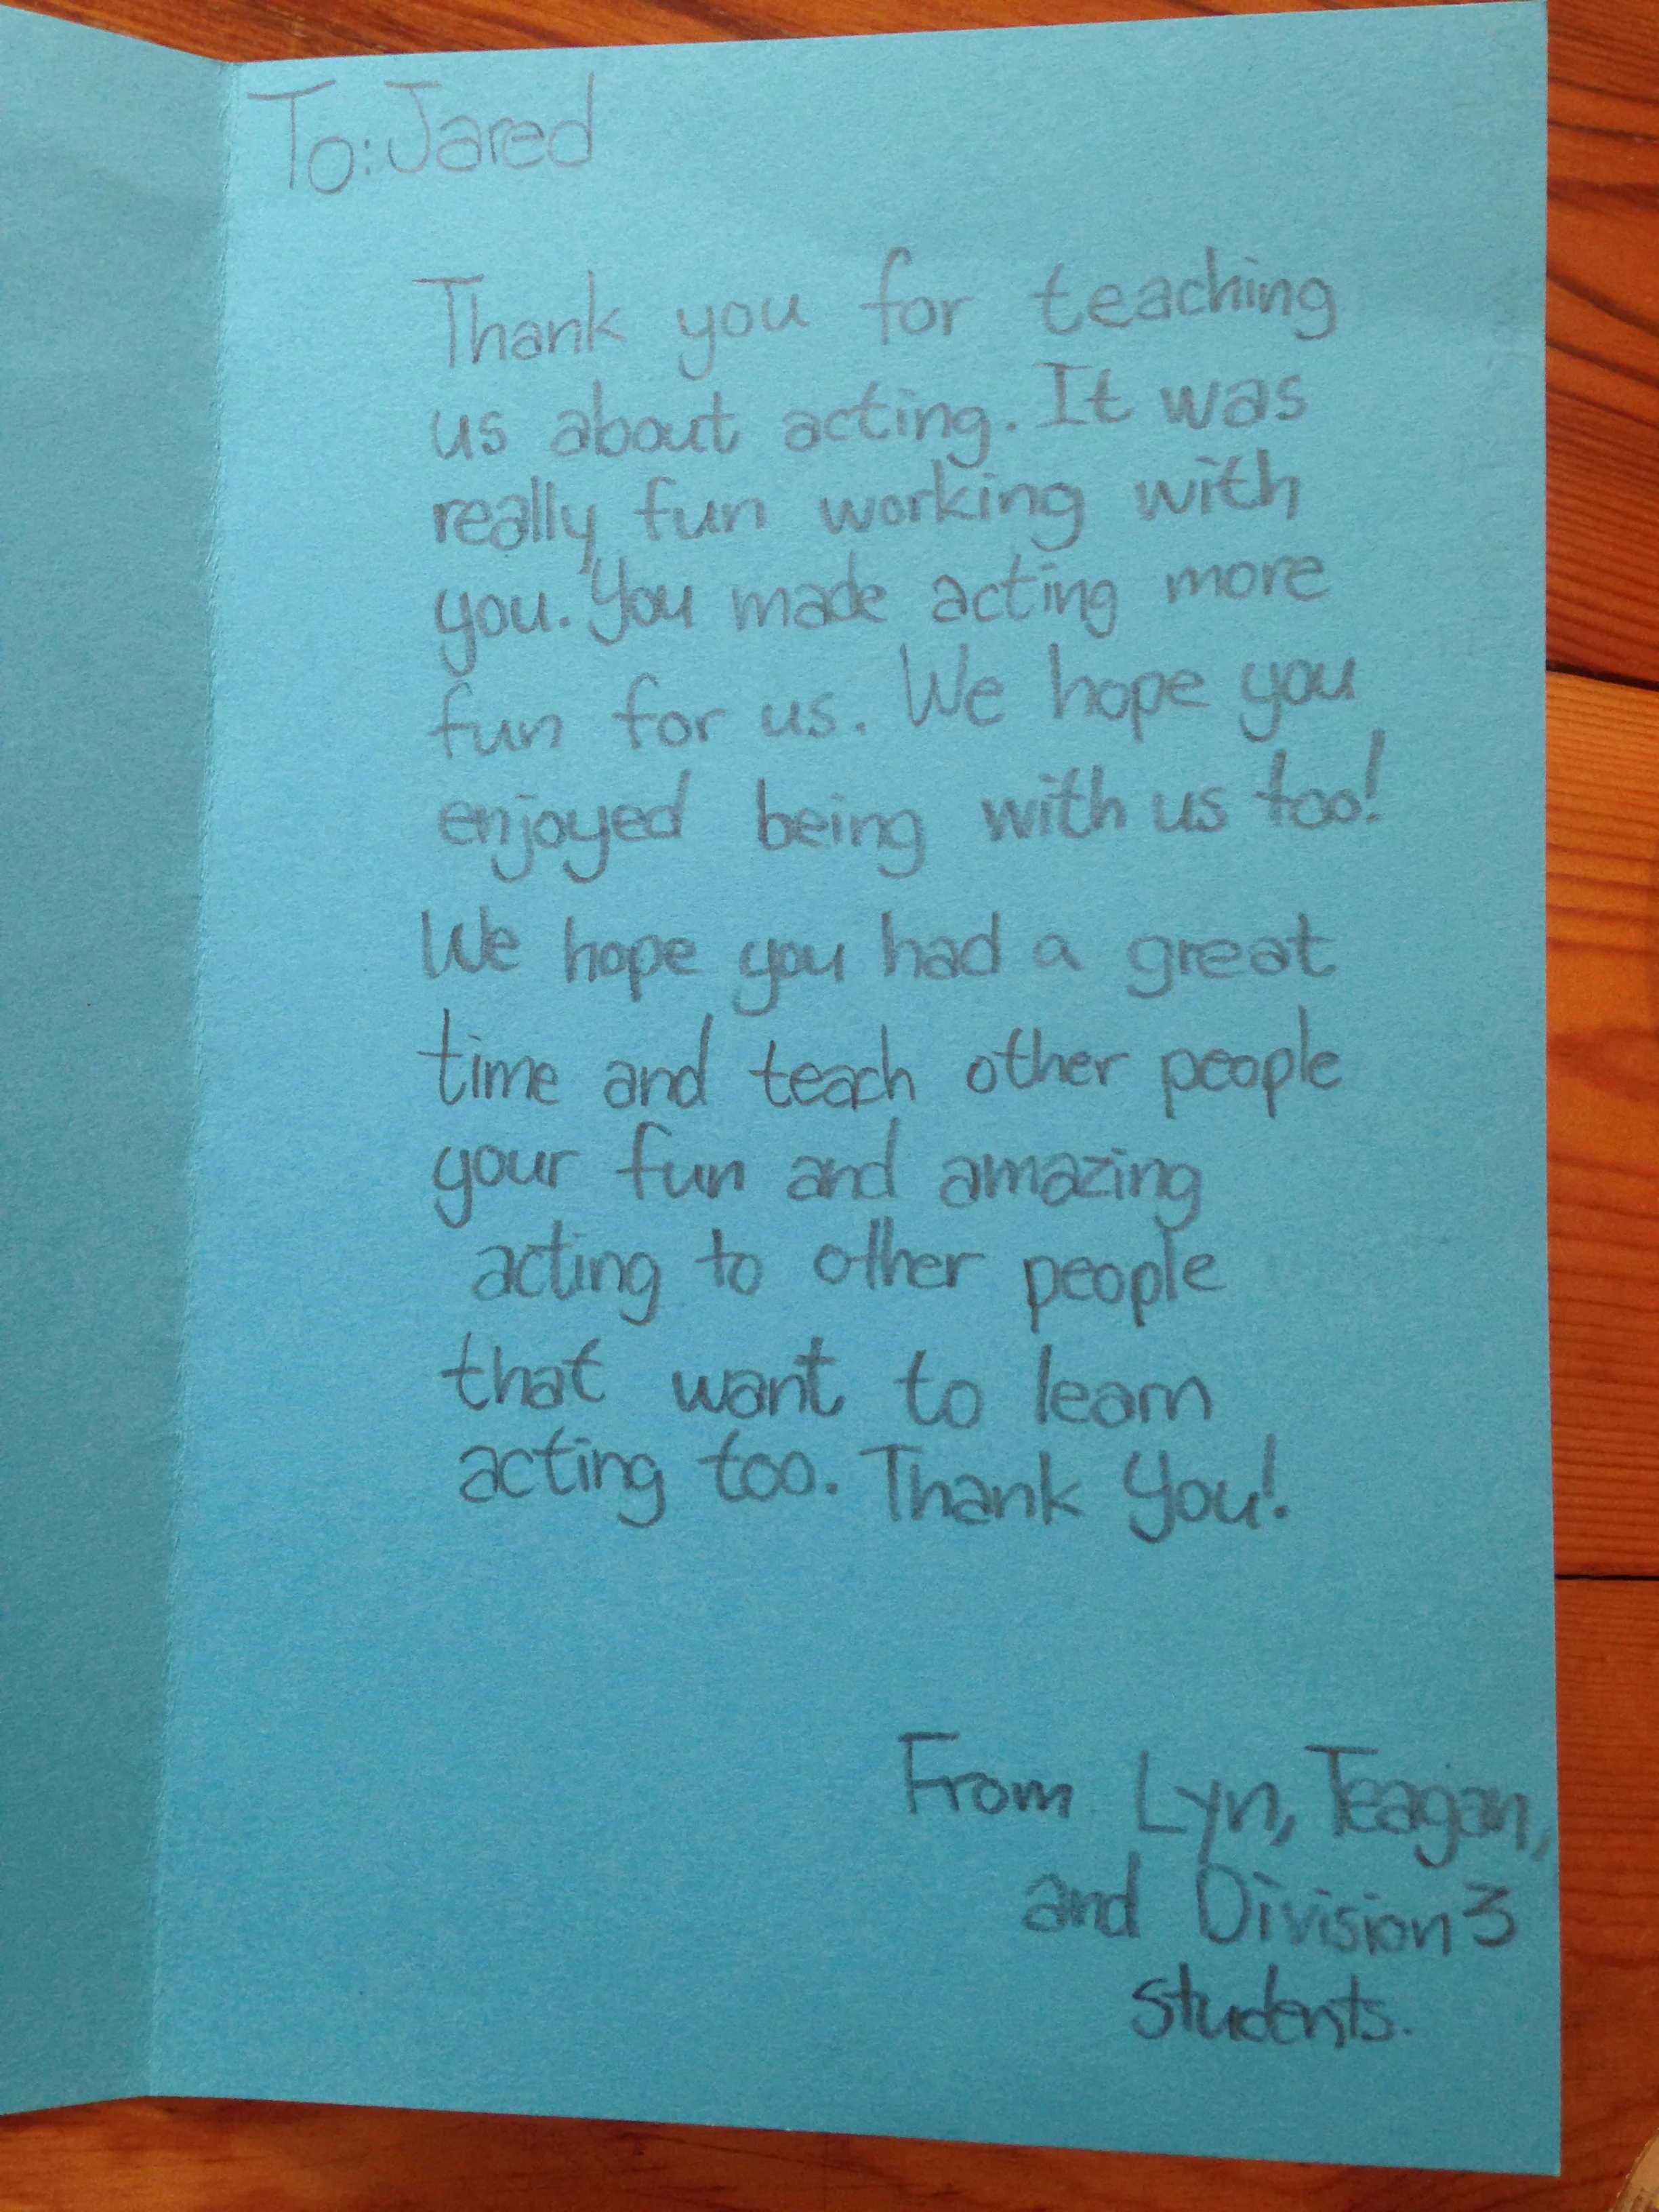 To: Jared
Thank you for teaching
us about acting. It was
really fun working with
you. You made acting more
fun for us. We hope you
enjoyed being with us too!
We hope you had a great
time and teach other people
your fun and amazing
acting to other people
that want to learn
acting too. Thank You!
From Lyn, Teagan,
and Division 3
students.